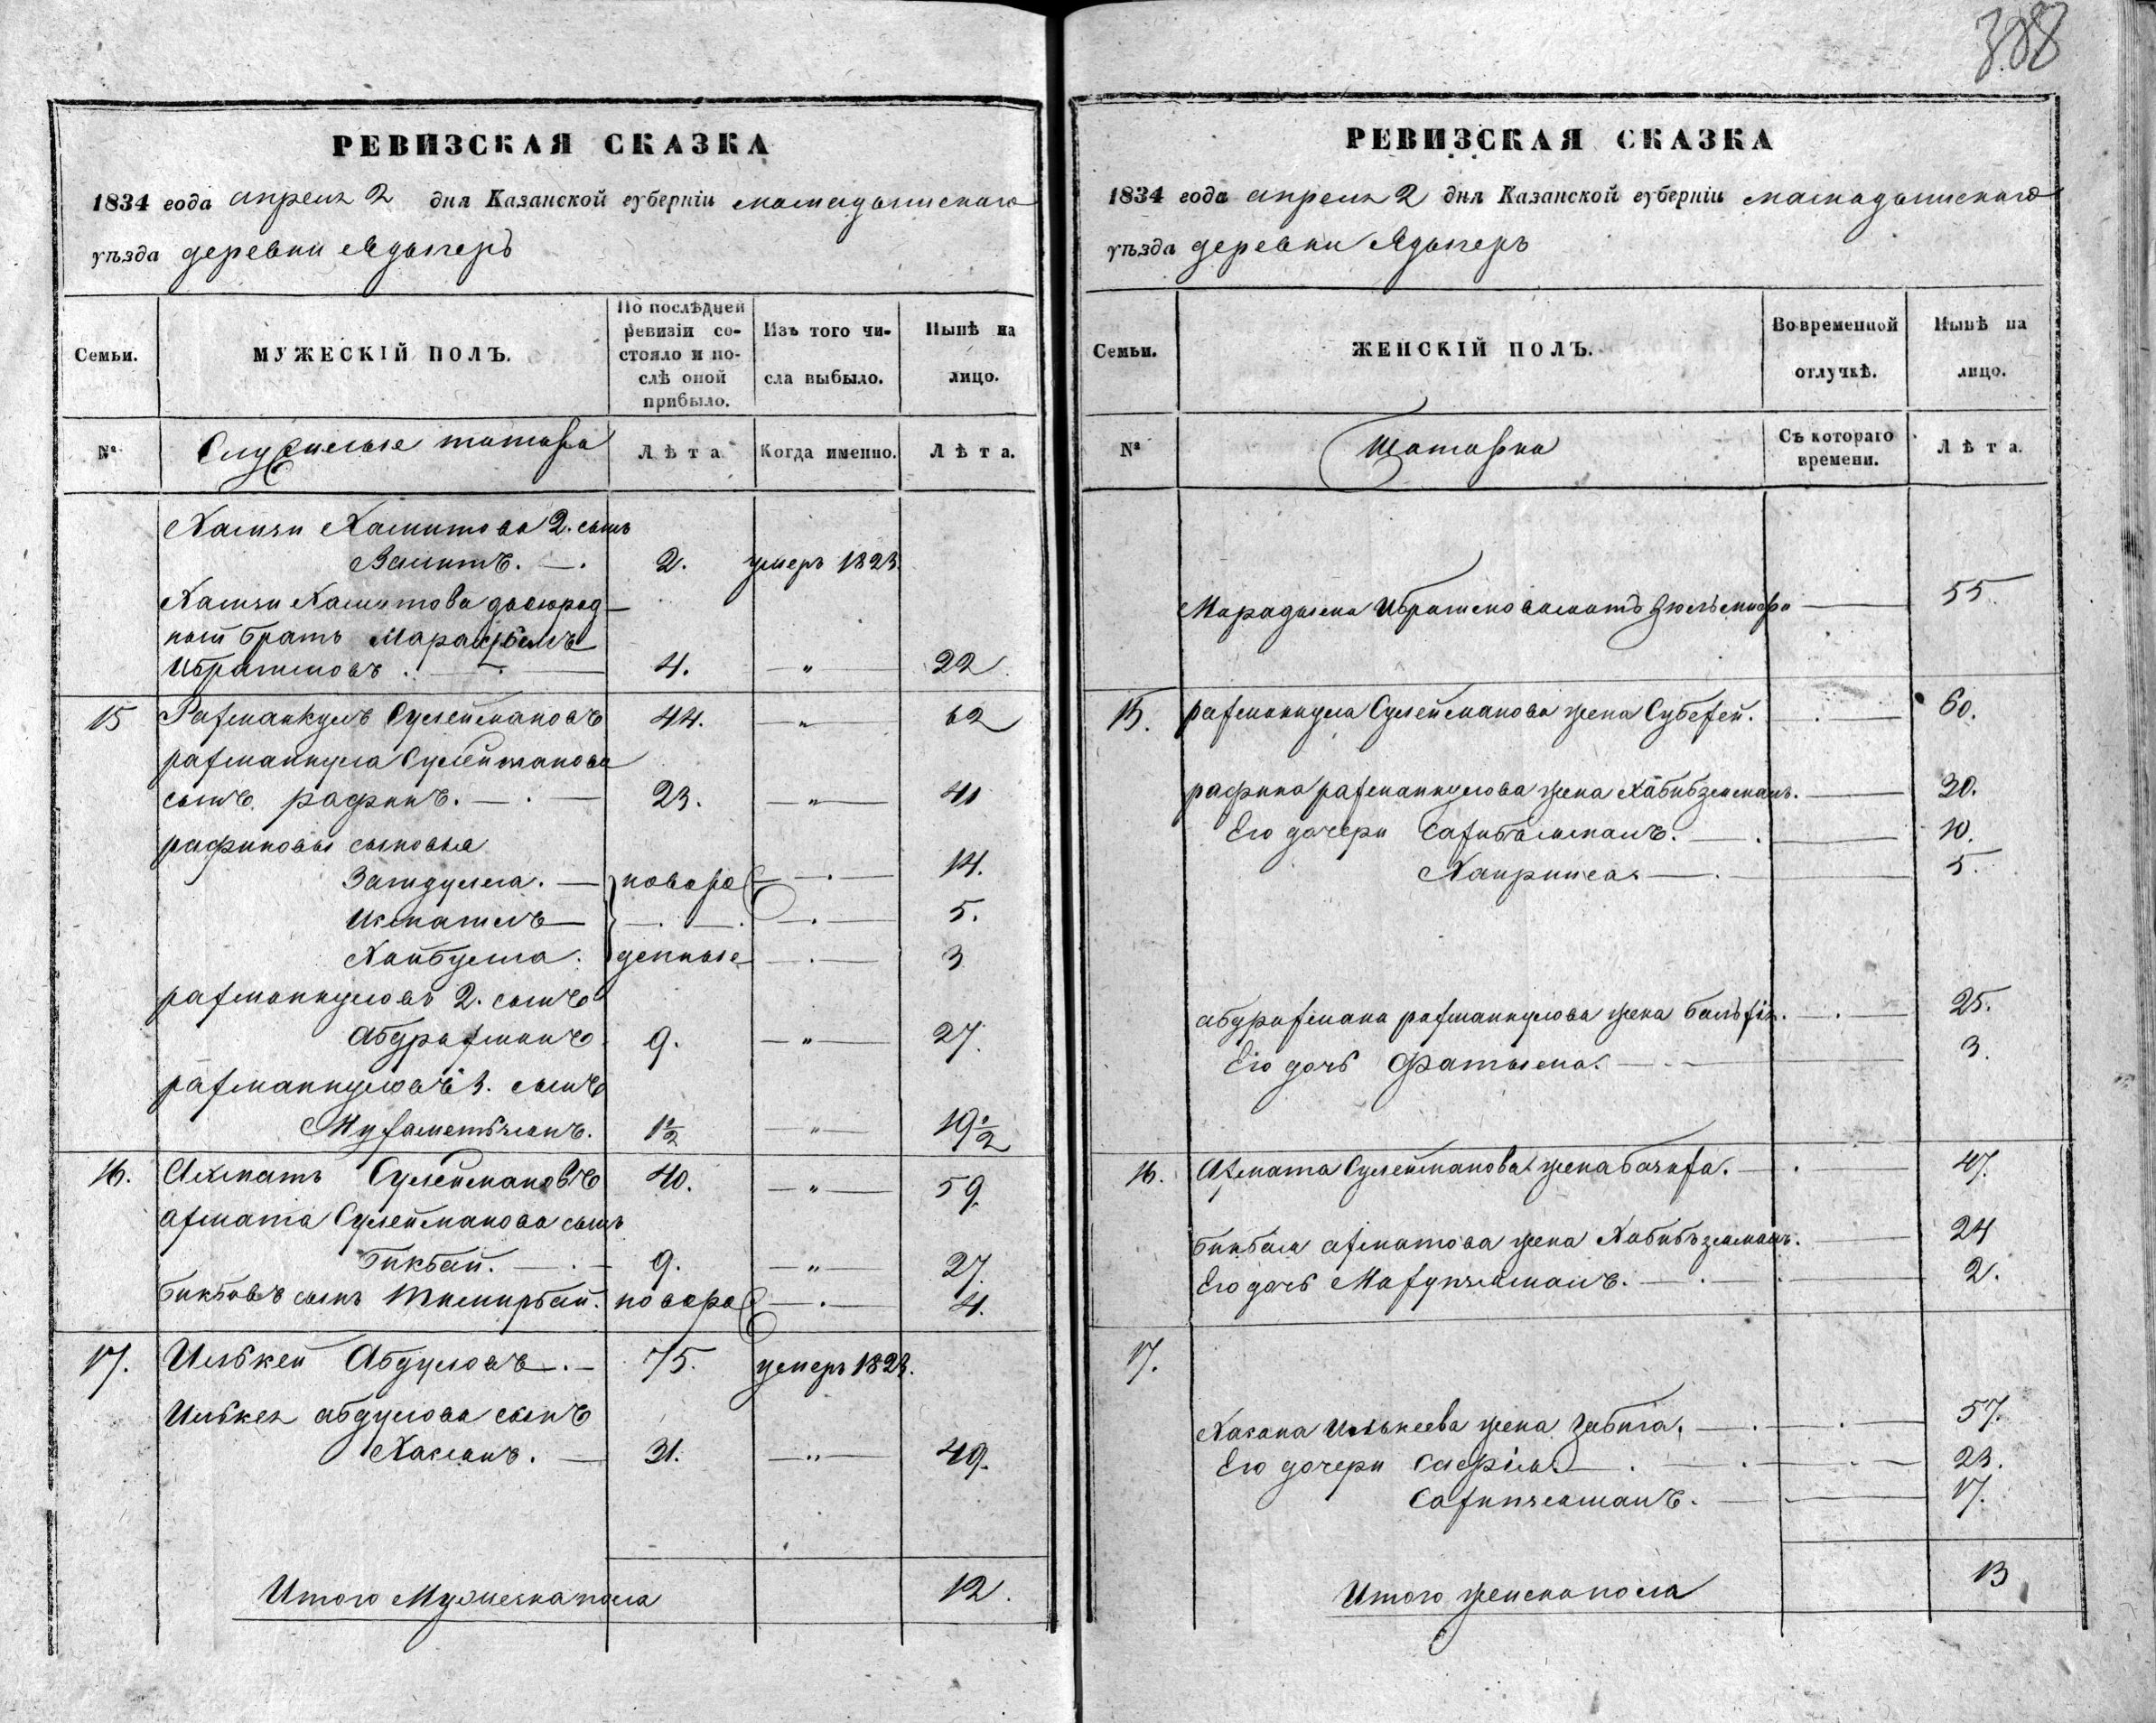 388
РЕВИЗСКАЯ СКАЗКА
1834 года апреля 2 дня Казанской губерніи мамадышскаго
уѣзда деревни Адыгеръ
Семьи. МУЖЕСКІЙ ПОЛЪ. По послѣдней ревизіи состояло и послѣ оной прибыло. Изъ того числа выбыло. Нынѣ на лицо.
№ Служилые татара Лѣта Когда именно. Лѣта.
Хамзи Хамитова 2. сынъ
Замитъ. 2. умеръ 1823.
Хамзи Хамитова двоюрод-
ной братъ
Ибрагимовъ. 4. " 22
15 Рахманкулъ Сулеймановъ 44. " 62
рахманкула Сулейманова
сынъ рафикъ. 23. " 41
рафиковы сыновья
новоро 14.
5.
Хайбулла. денные 3
рахманкуловъ 2. сынъ
Абдрахманъ 9. " 27.
рахманкуловъ 3. сынъ
Мухаметьянъ. 1½ " 19½
16. Ахматъ Сулеймановъ 40. " 59.
ахмата Сулейманова сынъ
Бикбай. 9. " 27.
сынъ Тимирбай. новоро 4.
17. Илькей Абдуловъ. 75. умеръ 1823.
Илькея абдулова сынъ
Хасанъ. 31. " 49.
Итого Мужеска пола 12.
РЕВИЗСКАЯ СКАЗКА
1834 года апреля 2 дня Казанской губерніи мамадышскаго
уѣзда деревни Адыгеръ
Семьи. ЖЕНСКІЙ ПОЛЪ. Во временной отлучкѣ. Нынѣ на лицо.
№ Татарка Съ котораго времени. Лѣта.
Ибрагимова мать 55
15. рахманкула Сулейманова жена 60.
рафика рахманкулова жена Хабибземалъ. 30.
Его дочери Сахибземалъ. 10.
Хайриниса. 5.
абдрахмана рахманкулова жена 25.
Его дочь Фатыма. 3.
16. Ахмата Сулейманова жена 47.
бикбая ахматова жена Хабибъземалъ. 24
Его дочь Махупземалъ. 2.
17.
Хасана Илькеева жена 57.
Его дочери Сафія. 23.
Сахипземалъ. 17.
Итого женска пола 13